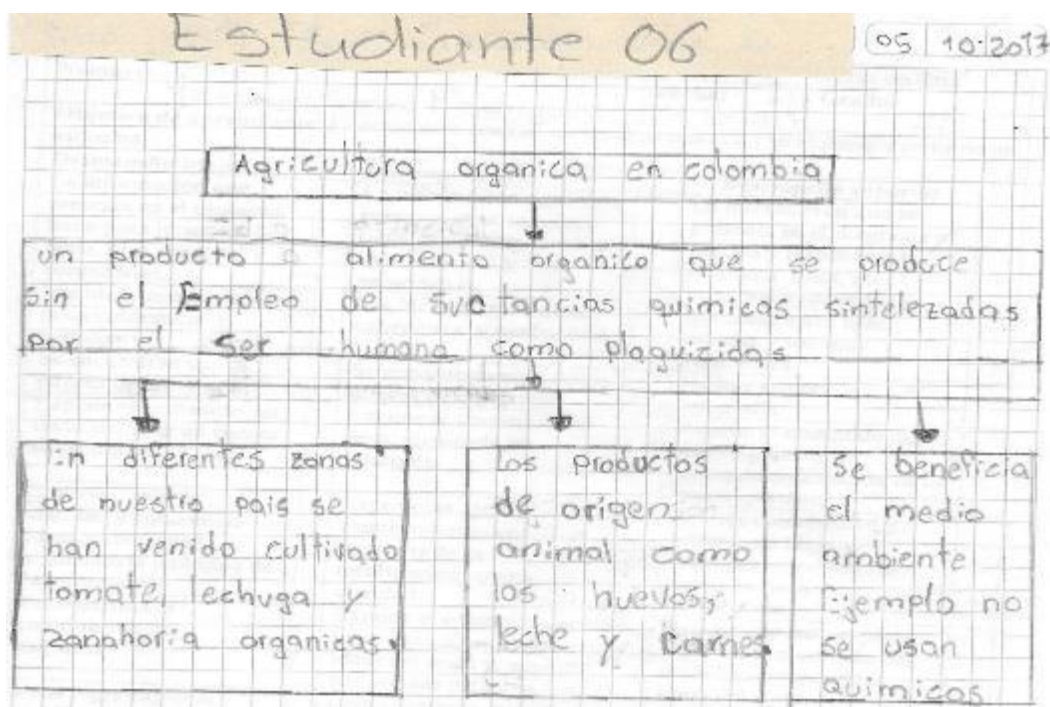 Estudiante 06
05 10.2017
Agricultura organica en colombia
un producto o alimento organico que se produce
sin el Empleo de suctancias quimicas sintelezadas
por el ser humano como plaguizidas
En diferentes zonas
de nuestro pais se
han venido cultivado
tomate, lechuga y
zanahoria organicas.
Los productos
de origen
animal como
los huevos,
leche y carnes.
Se beneficia
el medio
ambiente
Ejemplo no
se usan
quimicos